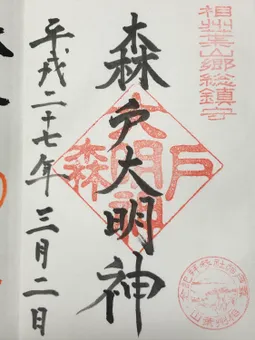 相州葉山郷総鎮守
森戸大明神
平成二十七年三月二日
森戸大明神